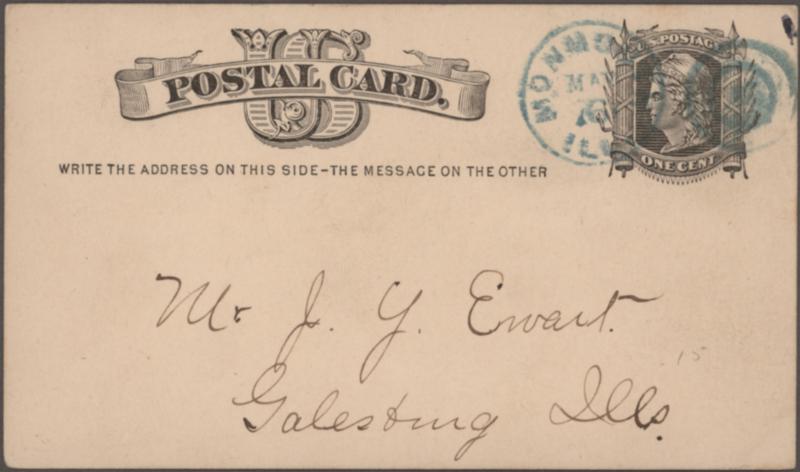 US
POSTAL CARD.
WRITE THE ADDRESS ON THIS SIDE–THE MESSAGE ON THE OTHER
U.S. POSTAGE
ONE CENT
ILL
Mr. J. Y. Ewart.
15
Galesburg Ills.